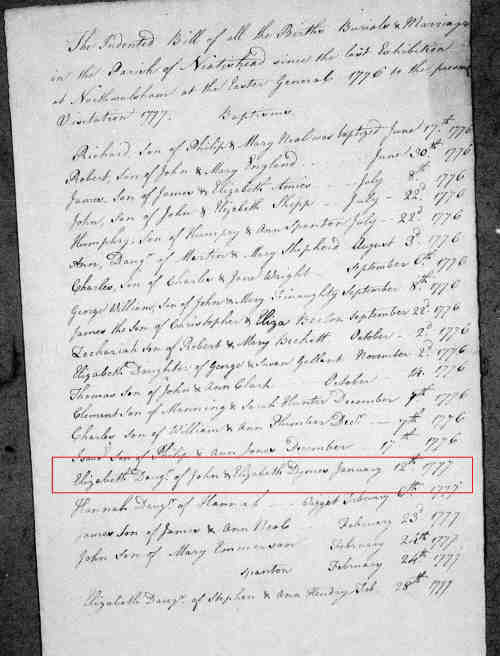 The Indented Bill of all the Births Burials & Marriages
in the Parish of Neatishead since the last Exhibition
at Northwalsham at the Easter General 1776 to the present
Visitation 1777. Baptisms
Richard Son of Philip & Mary Neal was baptized June 17.th 1776
Robert, Son of John & Mary England June 30.th 1776
James, Son of James & Elizabeth Amies July 8th 1776
John, Son of John & Elizbeth Shepp July 22d 1776
Humphry, Son of Humpry & Ann Spanton July 22d 1776
Ann, Daugr of Martin & Mary Shepherd August 3d 1776
Charles, Son of Charles & Jane Wright September 6th 1776
George William, Son of John & Mary September 8th 1776
James the Son of Christopher & Eliza September 22d 1776
Zechariah Son of Robert & Mary Beckett October 2d 1776
Elizabeth Daughter of George & Susan Gellant November 2d 1776
Thomas Son of John & Ann Clark October 14 1776
Clement Son of Manning & Sarah Hunter December 7th 1776
Charles Son of William & Ann Plumber Decr 7th 1776
Isaac Son of Philip & Ann Jones December 17th 1776
Elizabeth Daugr of John & Elizabeth Dymes January 12th 1777
Hannah Daugr of Hannah February 6th 1777
James Son of James & Ann Neale February 23d 1777
John Son of Mary Emmerson February 24th 1777
Spanton February 24th 1777
Elizabeth Daugr of Stephen & Ann Hendry Feb. 28th 1777